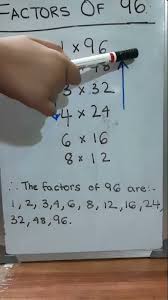 FACTORS OF 96
1 × 96
48
3 × 32
4 × 24
6 × 16
8 × 12
∴ The factors of 96 are:-
1, 2, 3, 4, 6, 8, 12, 16, 24,
32, 48, 96.